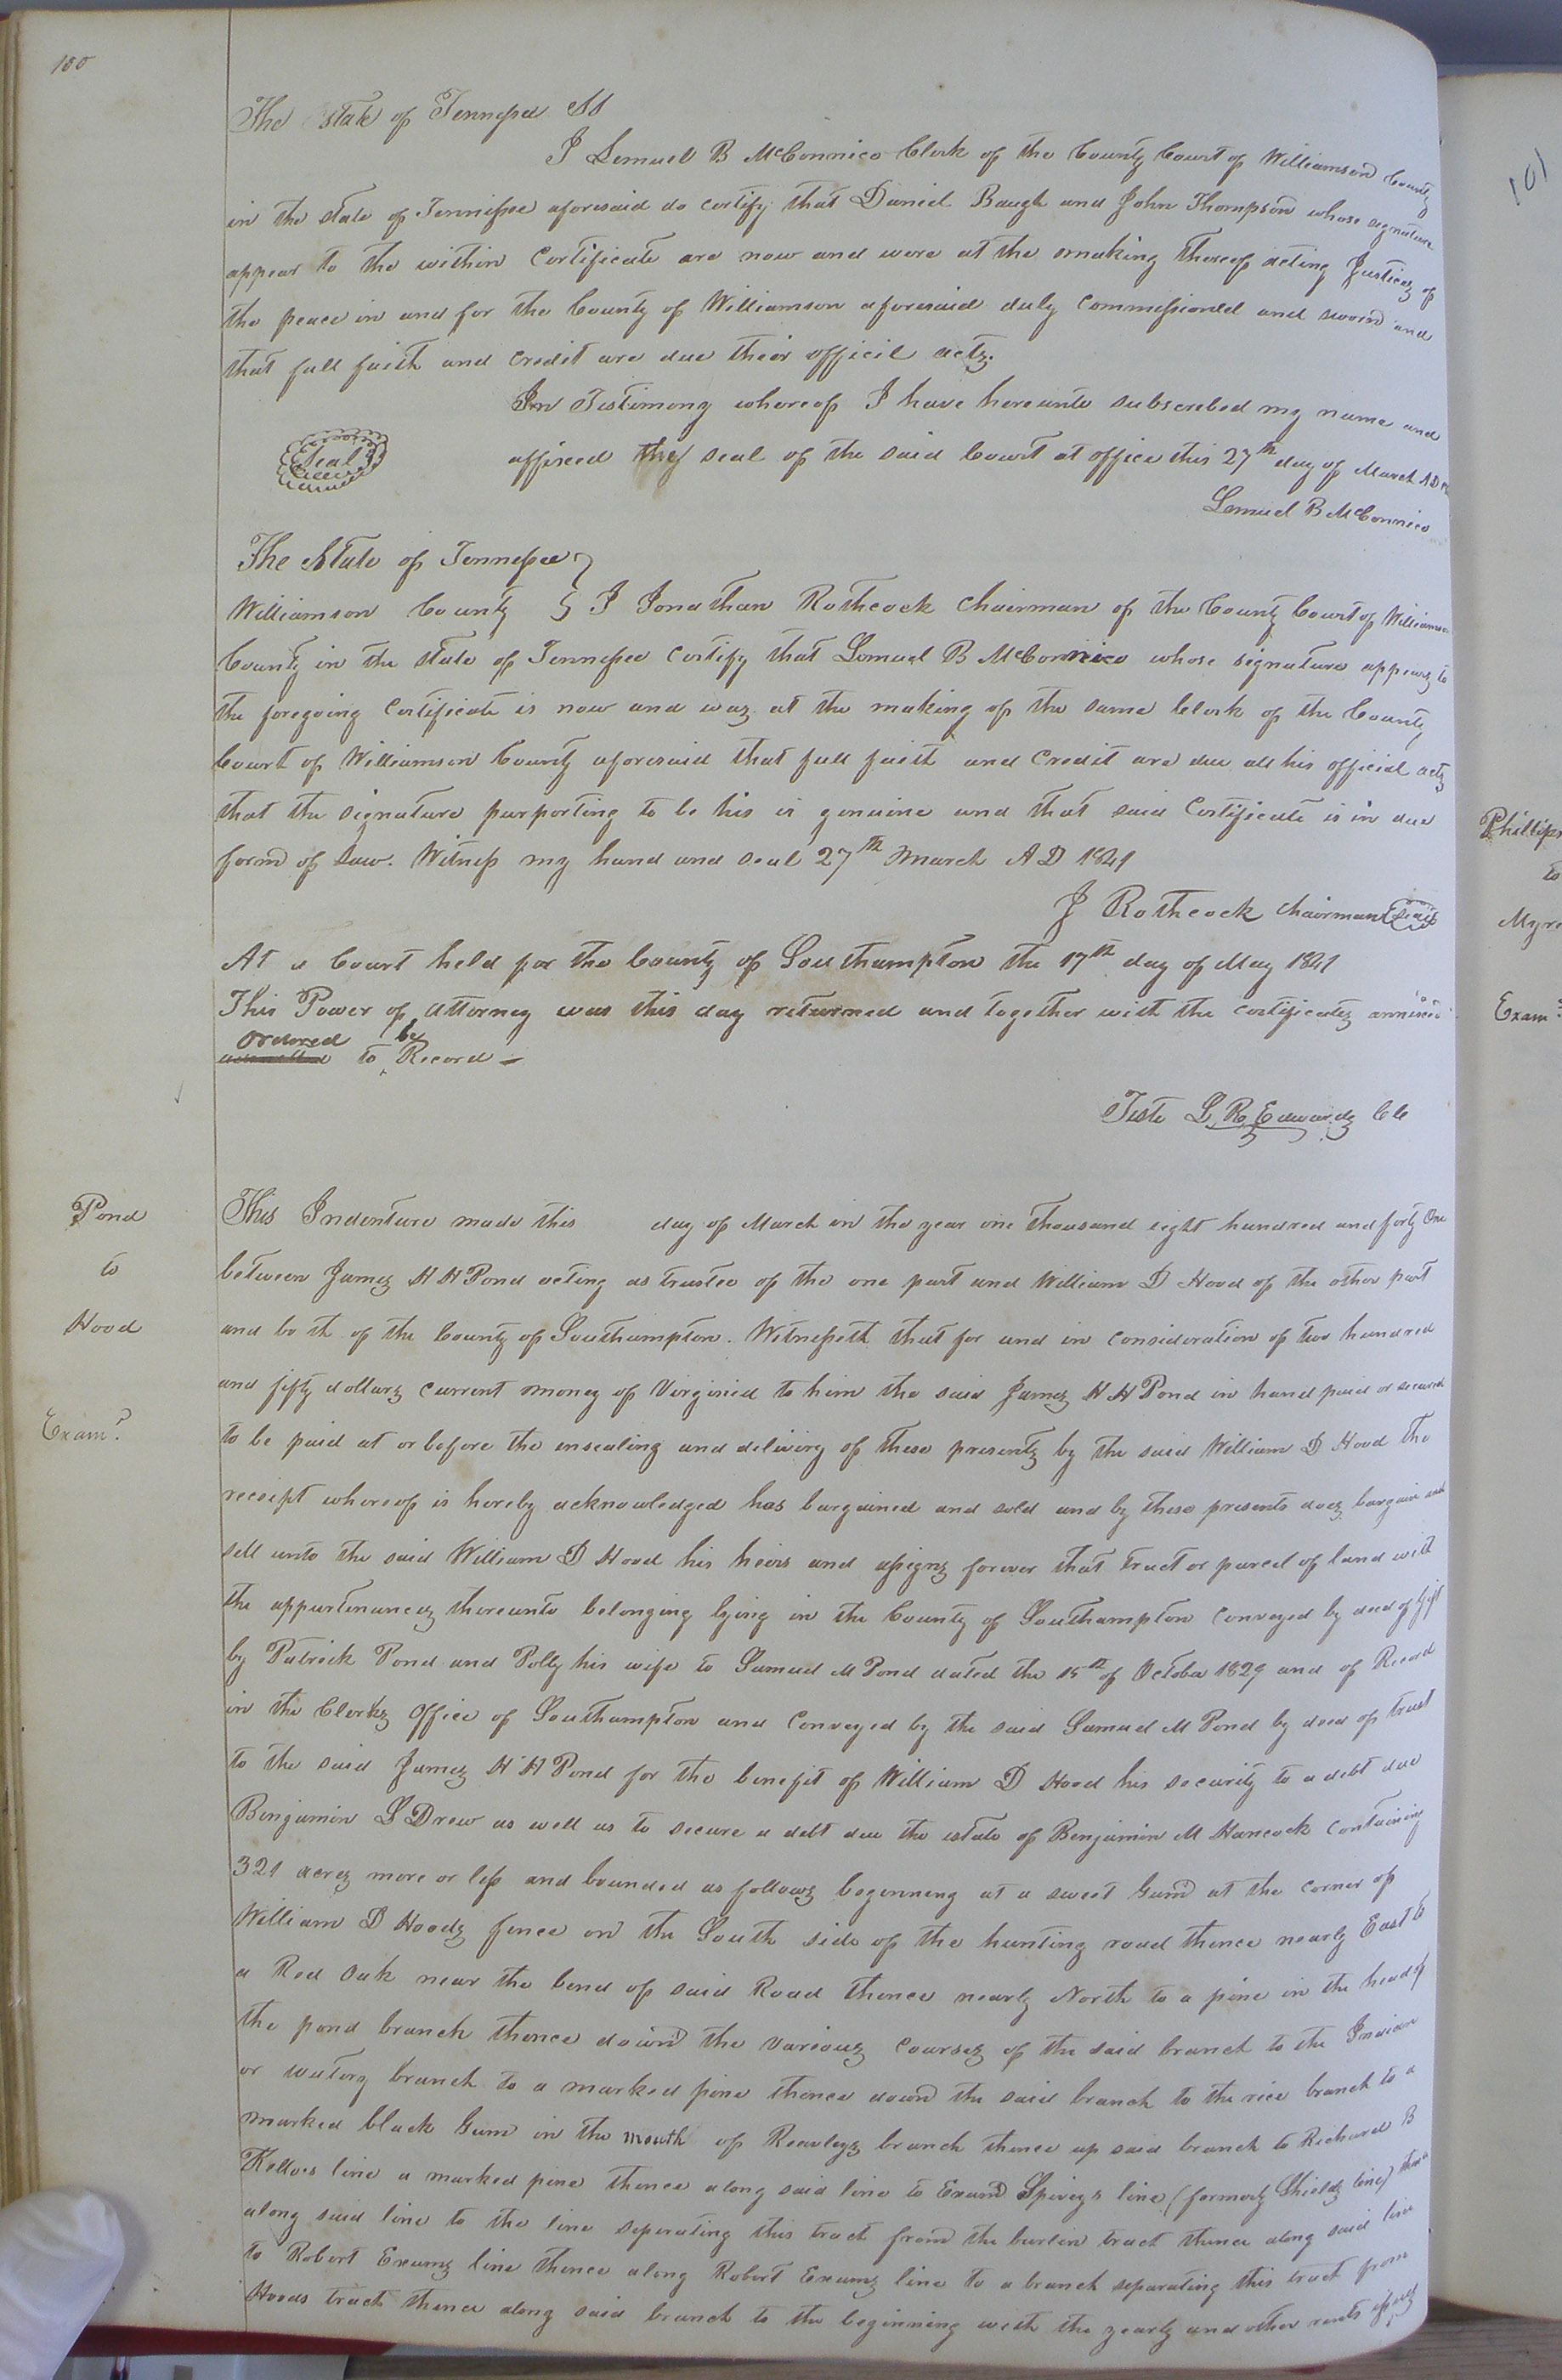 100
The state of Tennessee SS
I Lemuel B McConnico Clerk of the County Court of Williamson County
in the state of Tennessee aforesaid do certify that Daniel Baugh and John Thompson whose signature
appear to the within Certificate are now and were at the making thereof acting Justices of
the peace in and for the County of Williamson aforesaid duly Commissioned and sworn and
that full faith and credit are due their officil acts.
In Testimony whereof I have hereunto subscrebed my name and
Seal
affixed the seal of the said Court at office this 27th day of March AD
Lemuel B McConnico
The State of Tennessee
Williamson County } I Jonathan Rothcock Chairman of the County Court of Williamson
County in the state of Tennessee Certify that Lemuel B McConnico whose signature appears to
the foregoing Certificate is now and was at the making of the same Clerk of the County
Court of Williamson County aforesaid that full faith and Credit are due all his official acts
that the signature purporting to be his is genuine and that said Certificate is in due
form of Law. Witness my hand and seal 27th March AD 1841
J Rothcock Chairman Seal
At a Court held for the County of Southampton the 17th day of May 1841
This Power of attorney was this day returned and together with the certificates annexed
ordered to be Record
Teste L. R. Edwards CC
Pond
to
Hood
Exam.d
This Indenture made this day of March in the year one thousand eight hundred and forty One
between James H H Pond acting as trustee of the one part and William D Hood of the other part
and both of the County of Southampton. Witnesseth that for and in consideration of two hundred
and fifty dollars current money of Virginia to him the said James H H Pond in hand paid or secured
to be paid at or before the ensealing and delivery of these presents by the said William D Hood the
receipt whereof is hereby acknowledged has bargained and sold and by these presents does bargain and
sell unto the said William D Hood his heirs and assigns forever that tract or parcel of land with
the appurtenances thereunto belonging lying in the County of Southampton conveyed by deed of Gift
by Patrick Pond and Polly his wife to Samuel M Pond dated the 15th of October 1829 and of Record
in the Clerks Office of Southampton and Conveyed by the said Samuel M Pond by deed of trust
to the said James H H Pond for the benefit of William D Hood his security to a debt due
Benjamin S Drew as well as to secure a debt due the estate of Benjamin M Hancock Containing
321 acres more or less and bounded as follows beginning at a sweet Gum at the corner of
William D Hoods fence on the South side of the hunting road thence nearly East to
a Red Oak near the bend of said Road thence nearly North to a pine in the head of
the pond branch thence down the various courses of the said branch to the Indian
or watery branch to a marked pine thence down the said branch to the rice branch to a
marked black Gum in the mouth of branch thence up said branch to Richard B
Kellos line a marked pine thence along said line to Exum Spiveys line (formerly Shields line) thence
along said line to the line seperating this tract from the tract thence along said line
to Robert Exums line thence along Robert Exums line to a branch separating this tract from
Hoods tract thence along said branch to the beginning with the yearly and other rents
101
Phillips
to
Exam.d